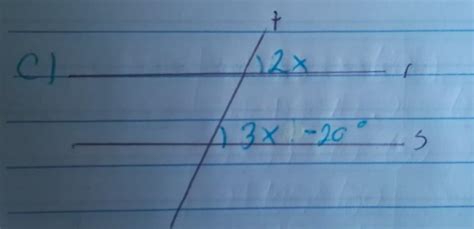 t
C) 2x r
3x -20° s